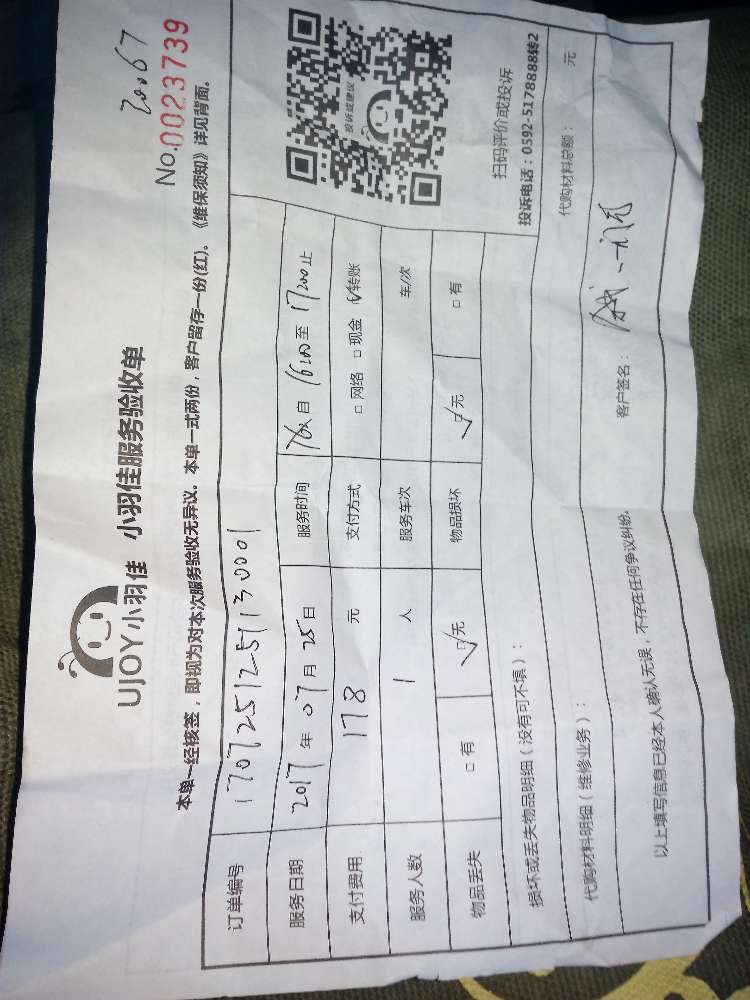 20067
No.0023739
UJOY小羽佳 小羽佳服务验收单
本单一经核签，即视为对本次服务验收无异议。本单一式两份，客户留存一份(红)。《维保须知》详见背面。
订单编号 1707251259130001
服务日期 2017 年 07 月 25 日 服务时间 自 1600 至 1700 止
支付费用 178 元 支付方式 □ 网络 □ 现金 ☑ 转账
服务人数 1 人 服务车次 车/次
物品丢失 □ 有 ☑ 无 物品损坏 ☑ 无 □ 有
投诉或建议
扫码评价或投诉
投诉电话：0592-5178888转2
损坏或丢失物品明细（没有可不填）：
代购材料明细（维修业务）： 代购材料总额： 元
以上填写信息已经本人确认无误，不存在任何争议纠纷。 客户签名：